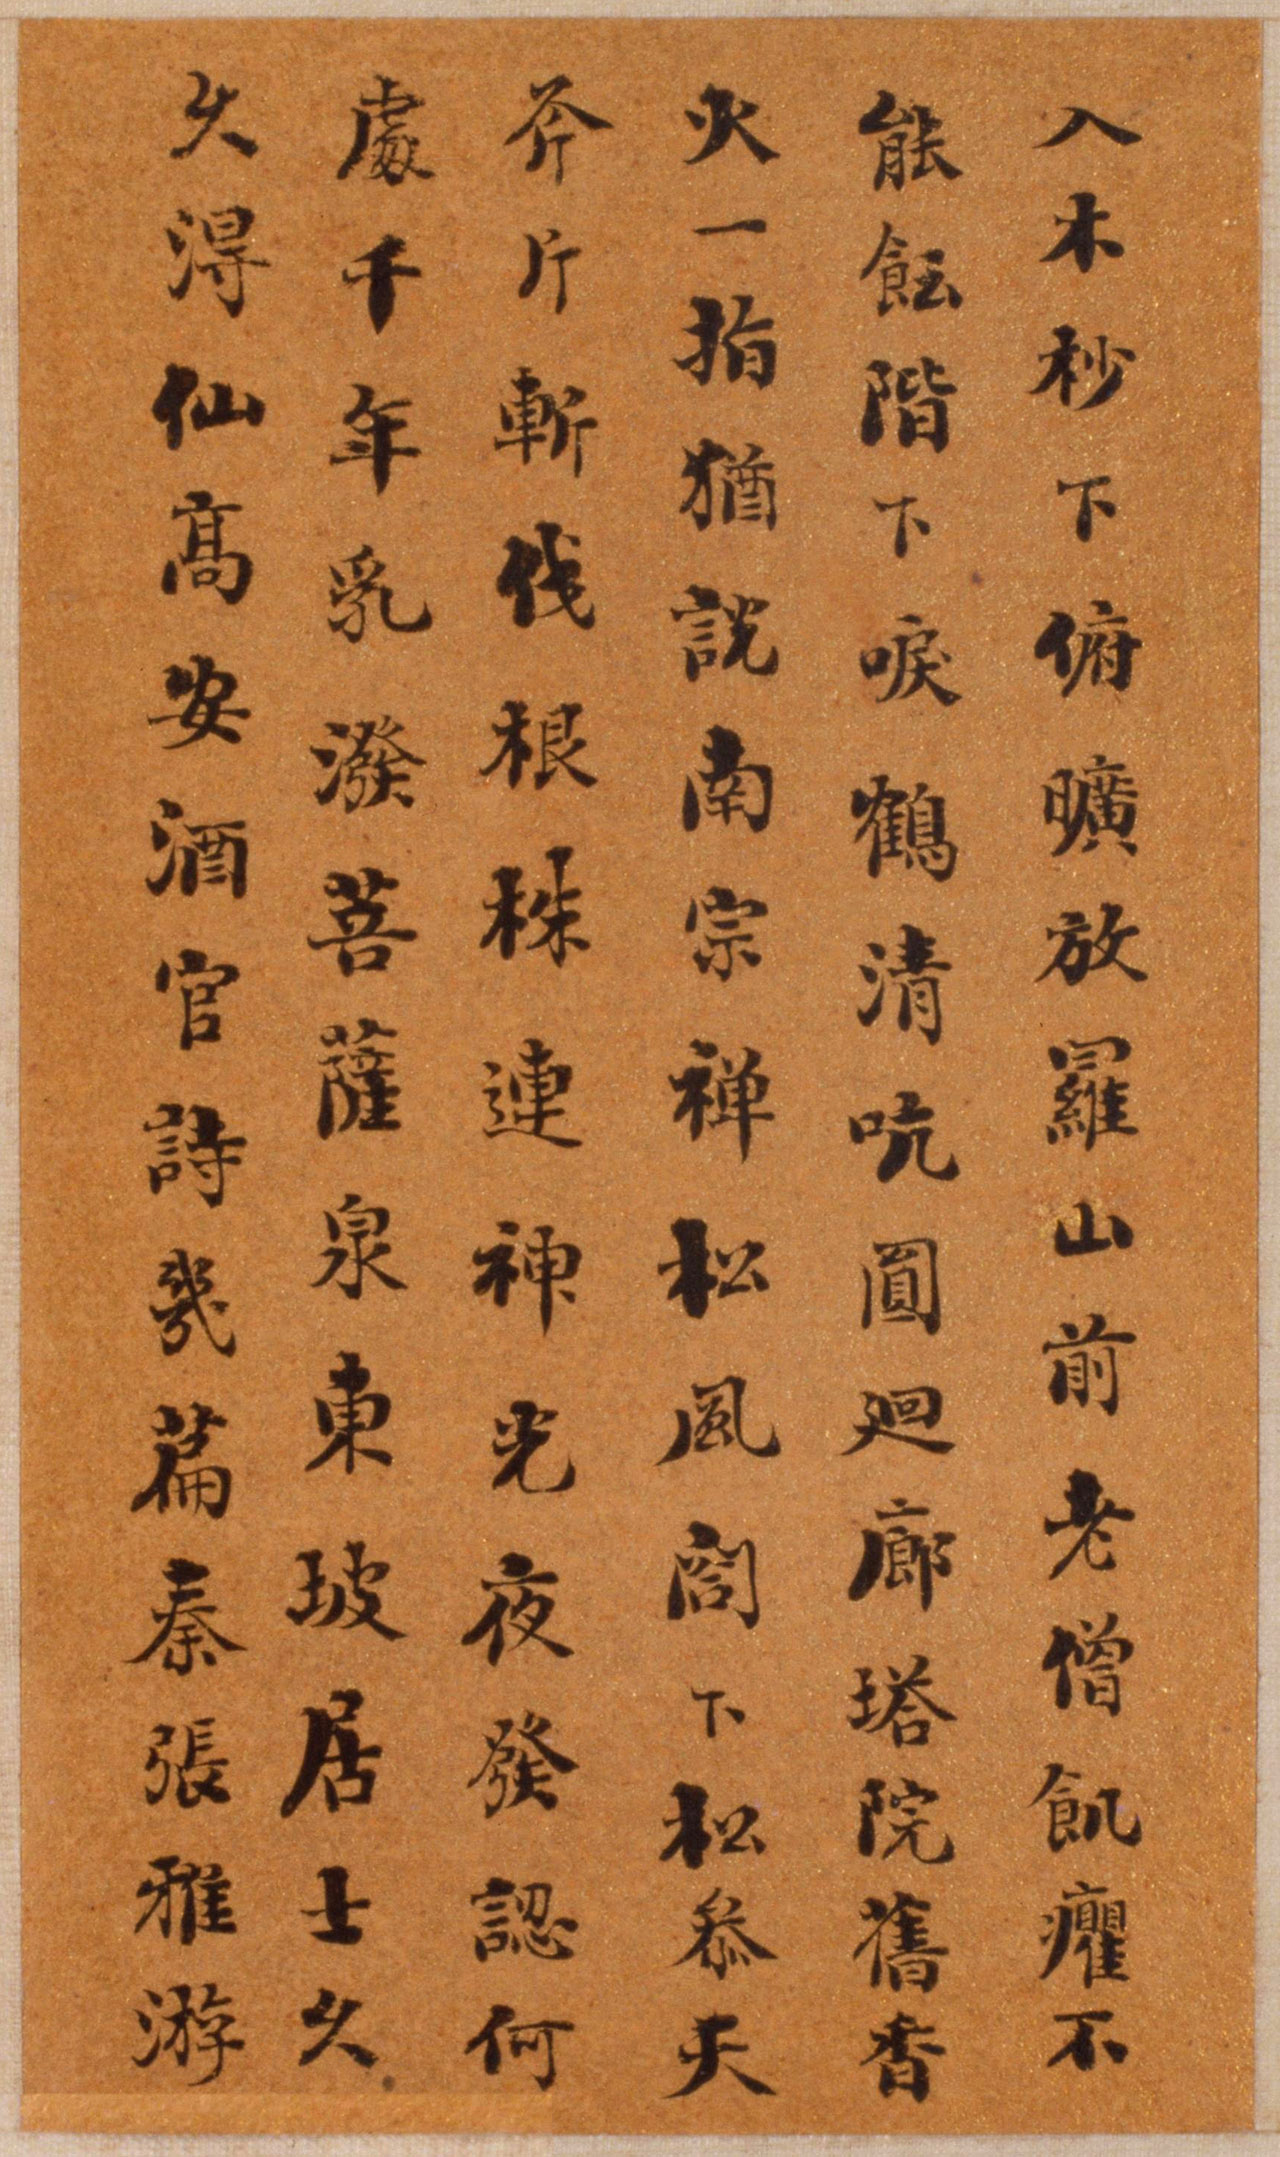 入木杪下俯曠放羅山前老僧飢癯不
能飪階下唳鶴清吭圓迴廊塔院舊香
火一指猶説南宗禅松風閣下松參天
斧片斬伐根株連神光夜發認何
處千年乳潑菩薩泉東坡居士久
久得仙高安酒官詩幾篇秦張雅游